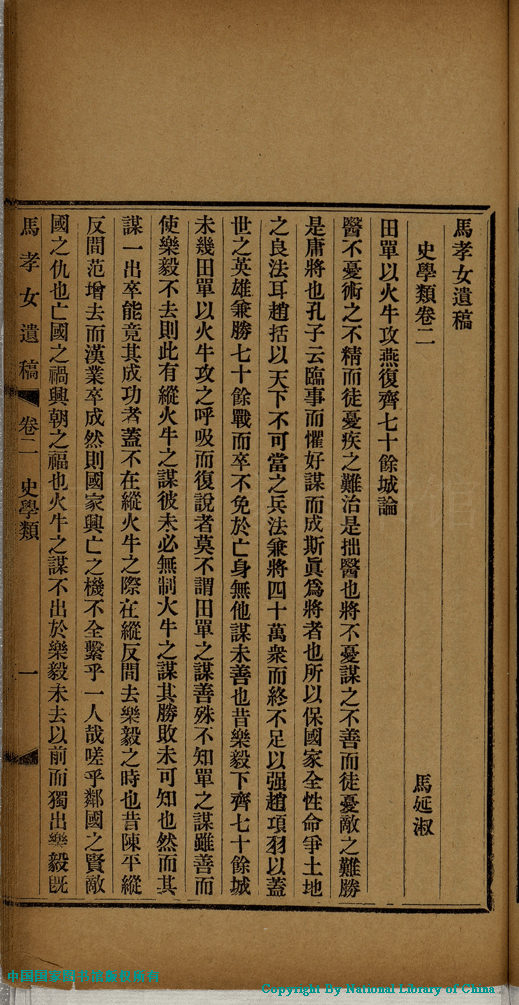 馬孝女遺稿
史學類卷二
馬延淑
田單以火牛攻燕復齊七十餘城論
醫不憂術之不精而徒憂疾之難治是拙醫也將不憂謀之不善而徒憂敵之難勝
是庸將也孔子云臨事而懼好謀而成斯眞爲將者也所以保國家全性命爭土地
之良法耳趙括以天下不可當之兵法兼將四十萬衆而終不足以强趙項羽以蓋
世之英雄兼勝七十餘戰而卒不免於亡身無他謀未善也昔樂毅下齊七十餘城
未幾田單以火牛攻之呼吸而復說者莫不謂田單之謀善殊不知單之謀雖善而
使樂毅不去則此有縱火牛之謀彼未必無制火牛之謀其勝敗未可知也然而其
謀一出卒能竟其成功者蓋不在縱火牛之際在縱反間去樂毅之時也昔陳平縱
反間范增去而漢業卒成然則國家興亡之機不全繫乎一人哉嗟乎鄰國之賢敵
國之仇也亡國之禍興朝之福也火牛之謀不出於樂毅未去以前而獨出樂毅旣
馬孝女遺稿 卷二 史學類 一
中国国家图书馆版权所有
Copyright By National Library of China